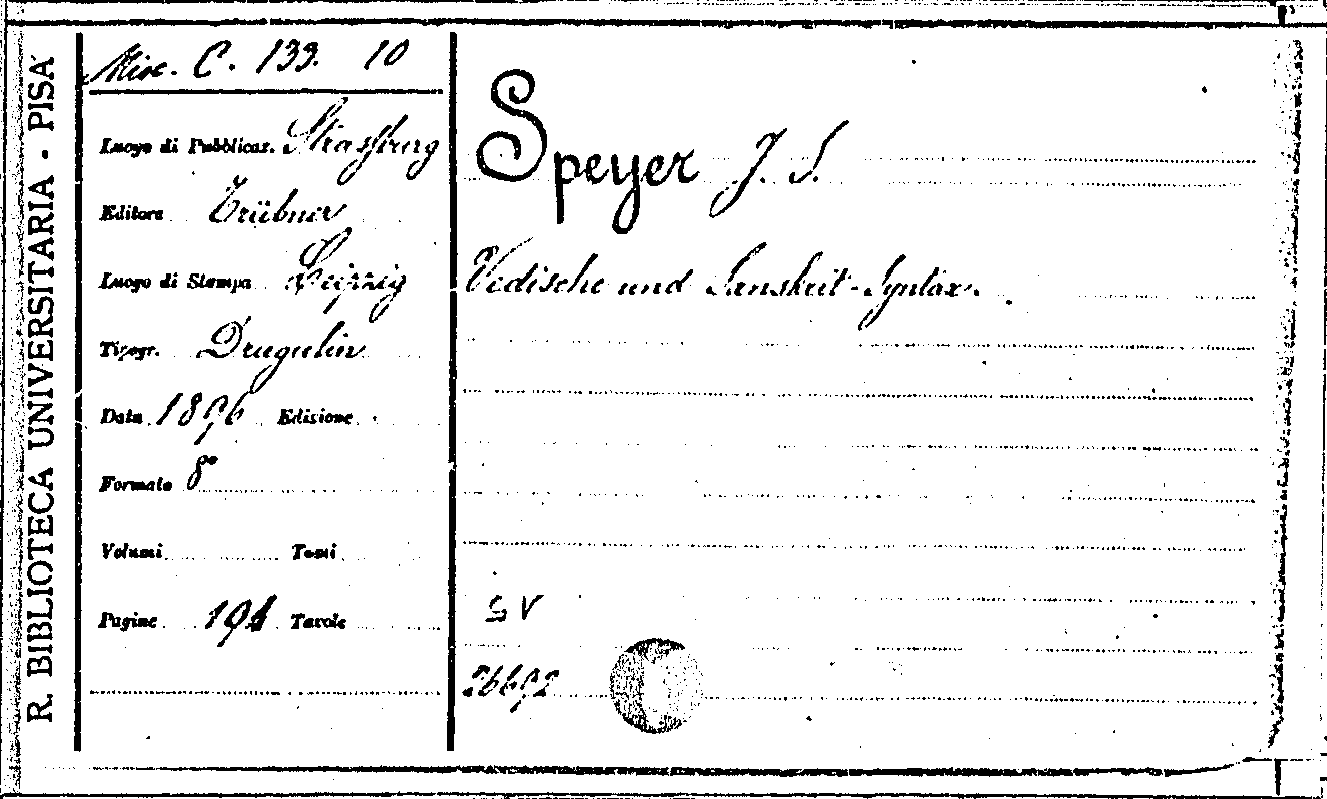 R. BIBLIOTECA UNIVERSITARIA - PISA
Misc. C. 133. 10
Luogo di Pubblicaz. Strassburg
Editore Trübner
Luogo di Stampa Leipzig
Tipogr. Drugulin
Data 1896 Edizione
Formato 8°
Volumi Tomi
Pagine Tavole
Speyer J. S.
Vedische und Sanskrit-Syntax.
26692